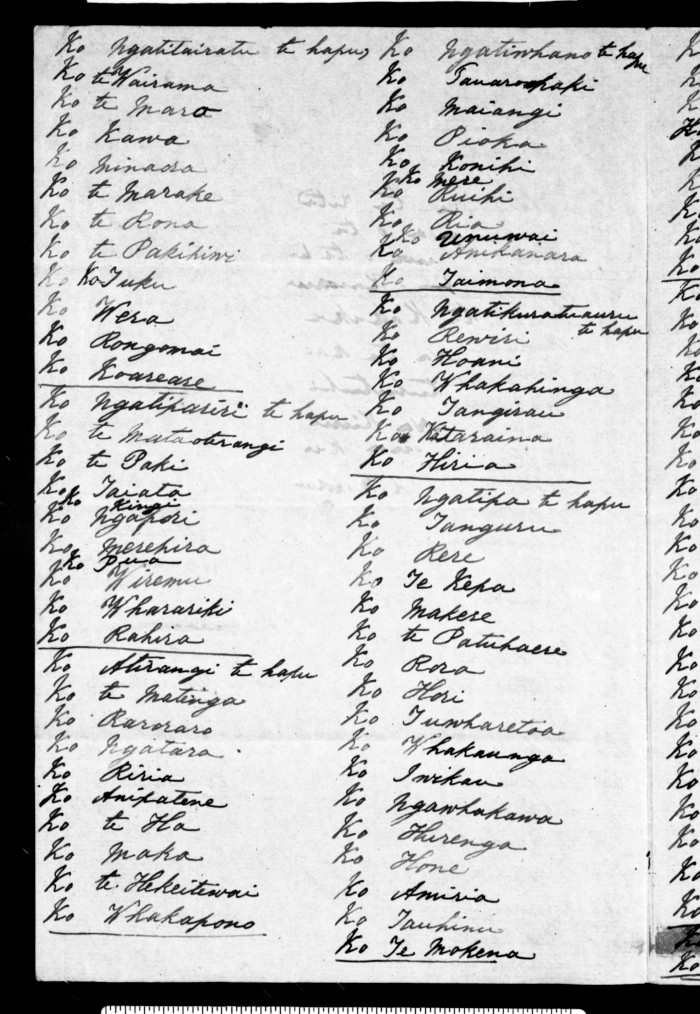 Ko Ngatitairatu te hapu,
Ko te Wairama
Ko te Maro
Ko Kawa
Ko Minaora
Ko te Marake
Ko te Rona
Ko te Pakihiwi
Ko Ko Tuku
Ko Wera
Ko Rongomai
Ko Koareare
Ko Ngatipariri te hapu
Ko te Mataoterangi
Ko te Paki
Ko Taiata
Ko Kingi
Ko Ngapori
Ko Merehira
Ko Pua
Ko Wiremu
Ko Wharariki
Ko Rahira
Ko Atirangi te hapu
Ko te Matenga
Ko Raroraro
Ko Ngatara
Ko Riria
Ko Anipatene
Ko te Ha
Ko Maka
Ko te Hekeitewai
Ko Whakapono
Ko Ngatiwhano te hapu
Ko
Ko Maiangi
Ko Pioka
Ko Konihi
Ko Mere
Ko Kuihi
Ko Ria
Ko Unuwai
Ko Anikanara
Ko Taimona
Ko Ngatikuratuauru
te hapu
Ko Rewiri
Ko Hoani
Ko Whakahinga
Ko Tangirau
Ko Kataraina
Ko Hiria
Ko Ngatipa te hapu
Ko Tanguru
Ko Rere
Ko Te Kepa
Ko Makere
Ko te Patuhaere
Ko Rora
Ko Hori
Ko Tuwharetoa
Ko Whakaunga
Ko Iwikau
Ko Ngawhakawa
Ko Hurenga
Ko Hone
Ko Amiria
Ko Tauhinu
Ko Te Mokena